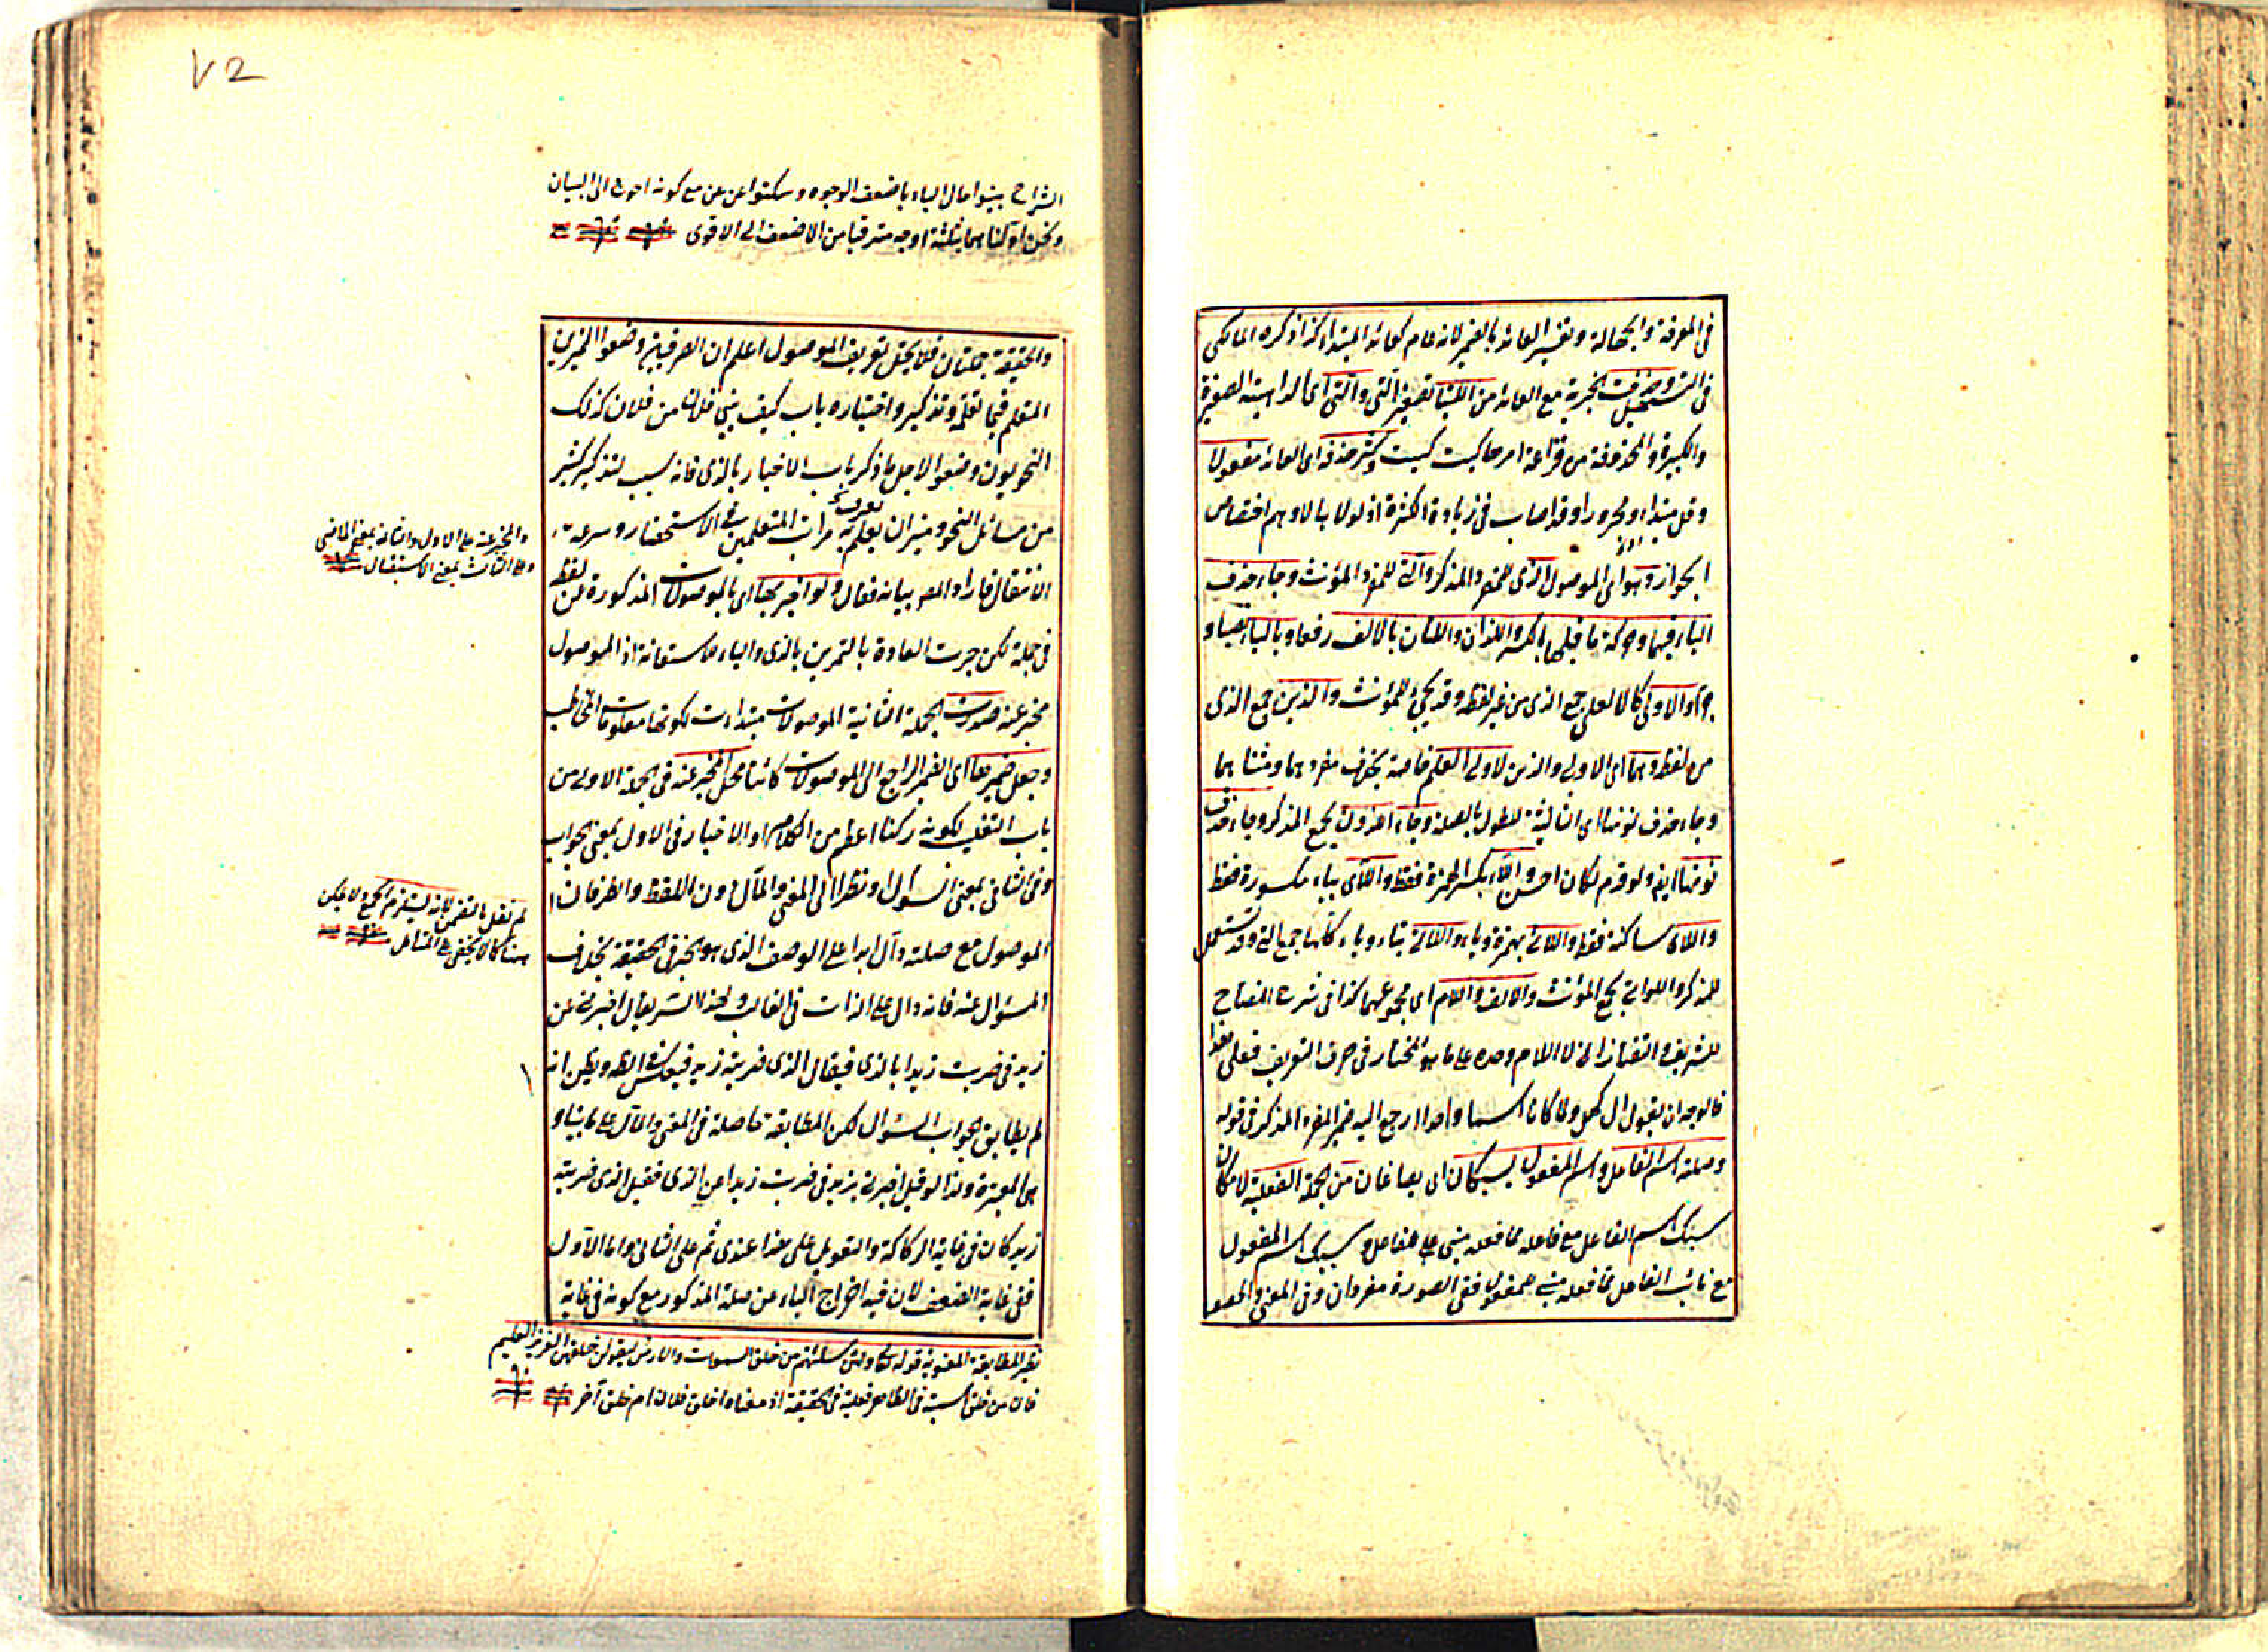 في المعرفة والجهالة وتفسير العائد بالضمير لانه عام كعائد المبتداء كذا ذكره المالكي
في التسهيل وحذفت الخبرية مع العائد من اللتيا تصغير التي والتي اى الداهية الصغيرة
والكبيرة والمحذوفة من قراعة امرها كيت كيت وكثر حذفه اى العائد مفعولا
وقل مبتداء ومجرورا وقد اصاب في زيادة اكثرة اذ لولا بالاوهم اختصاص
الجواز وهو اى الموصول الذى للمفرد المذكر والتى للمفرد المؤنث وجاء حذف
الياء فيهما وحركة ما قبلها بالكسر واللذان واللتان بالالف رفعا وبالياء نصبا و
جرا والاولى كالالعلى جمع الذى من غير لفظه وقد يجئ للمؤنث والذين جمع الذى
من لفظه وهما اى الاولى والذين لاولى العلم خاصة بخلاف مفردهما ومثناهما
وجاء حذف نونها اى الثالثة للطول بالصلة وجاء اللذون لجمع المذكر وجاء حذف
نونها ايضا ولو قدم لكان احسن واللاء بكسر الهمزة فقط واللاى بياء مكسورة فقط
واللاى ساكنة فقط واللائى بهمزة وياء واللاتى بتاء وياء كلها جمع التى وقد تستعمل
للمذكر واللواتى لجمع المؤنث والالف واللام اى مجموعهما كذا في شرح المفتاح
للشريف والتفتازانى لا اللام وحده على ما هو المختار في حرف التعريف فعلى هذا
فالوجه ان يقول ال كهل ولما كانا اسما واحدا ارجع اليه ضمير المفرد المذكر في قوله
وصلته اسم الفاعل واسم المفعول يسبكان اى يصاغان من الجملة الفعلية لامكان
سبك اسم الفاعل مع فاعله مما فعله مبنى على الفاعل وسبك اسم المفعول
مع نائب الفاعل مما فعله مبنى للمفعول ففى الصورة مفردان وفى المعنى والحصو
٧2
الشراح بينوا مآل الباء باضعف الوجوه وسكتوا عن عن مع كونه احوج الى البيان
ونحن اولناهما بثلثة اوجه مترقيا من الاضعف الى الاقوى
والحقيقة جملتان فلا يختل تعريف الموصول اعلم ان الصرفيين وضعوا التمرين
المتعلم فيما تعلمه وتذكيره واختباره باب كيف يبنى فلان من فلان كذلك
النحويون وضعوا لاجل ما ذكر باب الاخبار بالذى فانه سبب لتذكير كثير
من مسائل النحو وميزان يعلم به مراتب المتعلمين في الاستحضار وسرعة
الانتقال فاراد المص بيانه فقال ولو اخبر بها اى بالموصولات المذكورة عن لفظ
في جملة لكن جرت العادة بالتمرين بالذى والباء للاستعانة اذ الموصول
مخبر عنه صدرت الجملة الثانية الموصولات مبتداءات لكونها معلومات المخاطب
وجعل ضميرها اى الضمير الراجع الى الموصولات كائنا محل المخبر عنه في الجملة الاولى من
باب التغليب لكونه ركنا اعظم من الكلام او الاخبار في الاول بمعنى الجواب
وفى الثانى بمعنى السؤال او نظرا الى المعنى والمآل دون اللفظ والظرفان
الموصول مع صلته دال ابدا على الوصف الذى هو الخبر في الحقيقة بخلاف
المسؤال عنه فانه دال على الذات في الغالب ولهذا اشتهر يقال اخبرنى عن
زيد في ضربت زيدا بالذى فيقال الذى ضربته زيد فيعكس في الظاهر ويظن انه
لم يطابق الجواب السؤال لكن المطابقة حاصلة في المعنى والمآل على ما بينا و
هى المعتبرة ولذا لو قيل اخبرنى بزيد في ضربت زيدا عن الذى فقيل الذى ضربته
زيد كان في غاية الركاكة والتعويل على هذا عندى ثم على الثانى واما الاول
ففى غاية الضعف لان فيه اخراج الباء عن صلة المذكور مع كونه في غاية
والمخبر عنه على الاول والثانى بمعنى الماضى
وعلى الثالث بمعنى الاستقبال
لم نقل بالتضمن لانه يستلزم الجمع ولا يمكن
هنا كما لا يخفى على المتأمل
نظير المطابقة المعنوية قوله تعالى ولئن سئلتهم من خلق السموات والارض ليقولن خلقهن العزيز العليم
فان من خلق اسمية في الظاهر فعلية في الحقيقة اذ معناه اخلق فلان ام خلق آخر